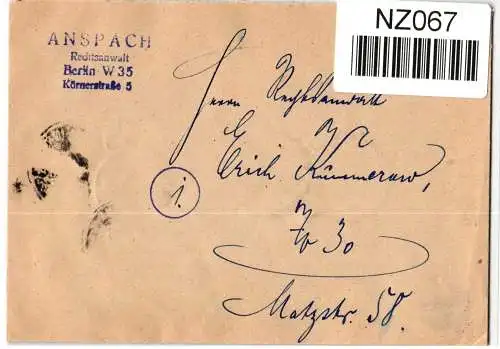 ANSPACH
Rechtsanwalt
Berlin W 35
Körnerstraße 5
NZ067
Herrn Rechtsanwalt
Erich Kümmerow,
W 30
Motzstr. 58.